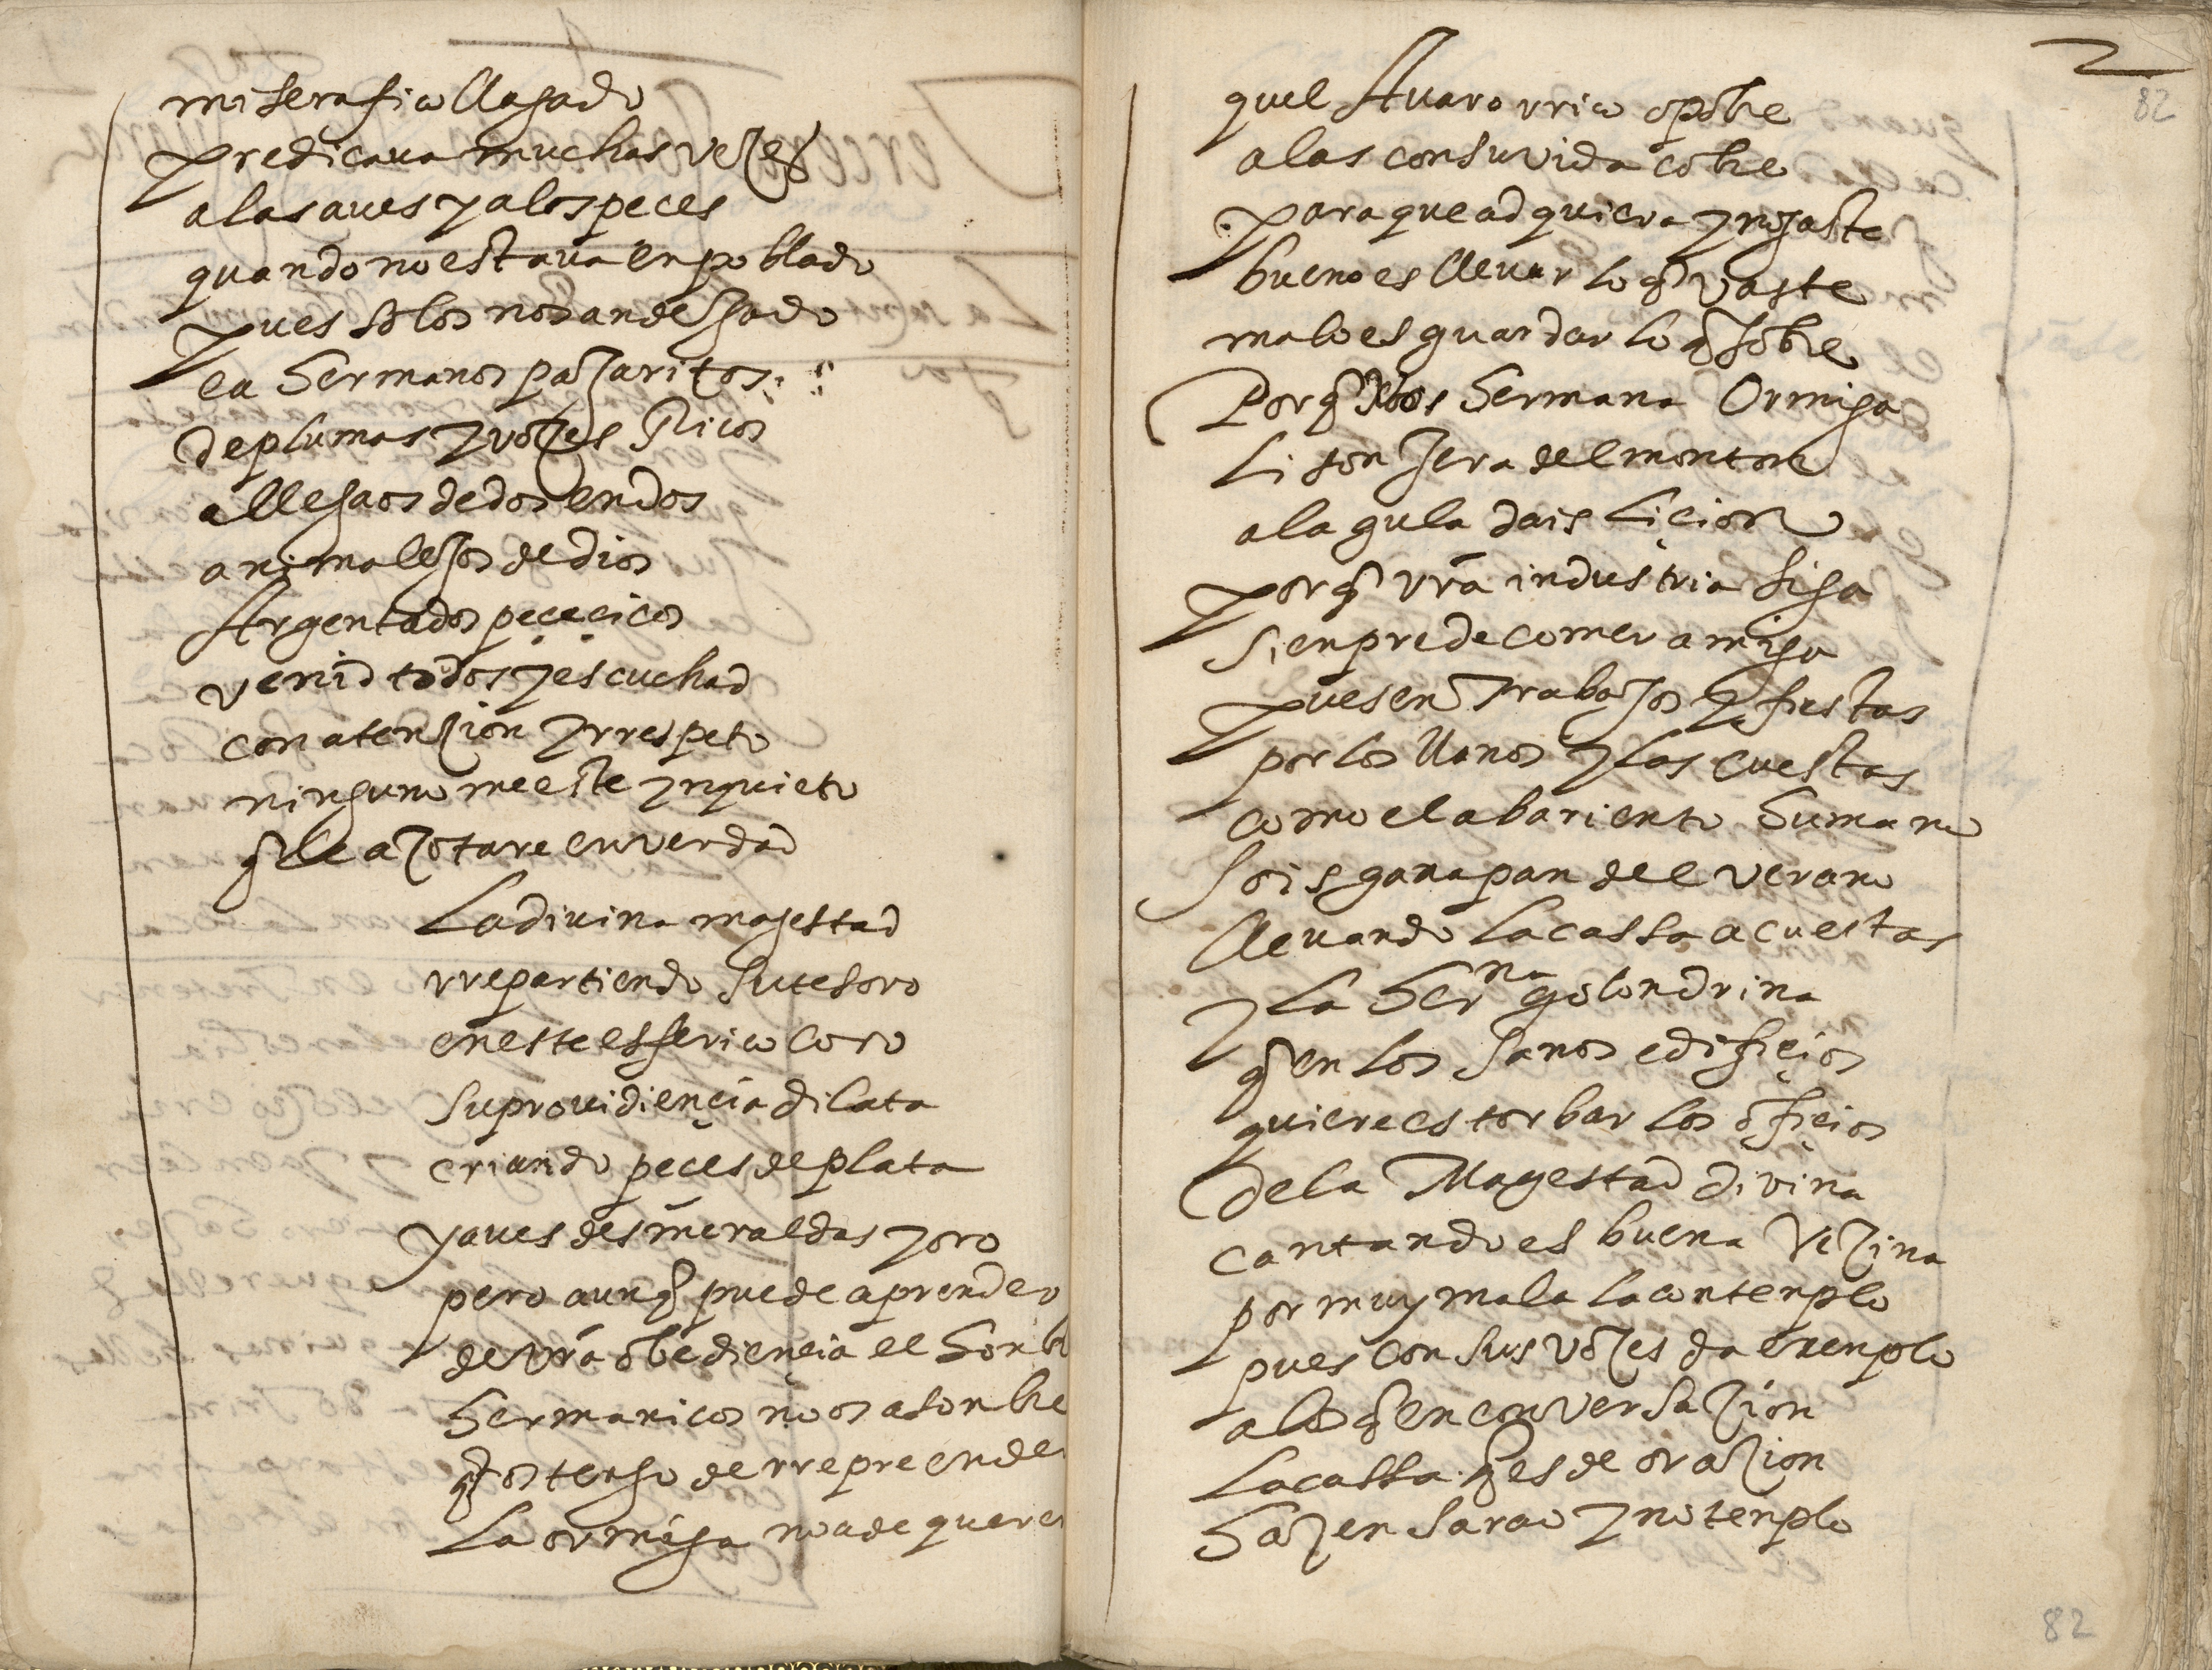 mi serafico llagado
predicaua muchas vezes
a las aues y a los peces
quando no estaua en poblado
pues solos nos an dejado
ea hermanos pajaritos
de plumas y vozes Ricos
allegaos de dos en dos
animalejos de dios
Argentados peçeçicos
venid todos y escuchad
con atenzion y rrespeto
ninguno me este ynquieto
q̃ le azotare en verdad
La divina magestad
rrepartiendo su tesoro
en este esferico coro
su providiençia dilata
criando peces de plata
y aues desmeraldas y oro
pero aunq̃ puede aprender
de vrã obediençia el honb
hermanicos no os asonbre
q̃ os tengo de rrepreender
La ormiga no a de querer
quel Auaro rrico o pobre
a las con su vida cobre
para que adquiera y no gaste
bueno es lleuar lo q̃ vaste
malo es guardar lo q̃ sobre
Porq̃ vos hermana Ormiga
Lisonjera del monton
a la gula dais liçion
porq̃ vrã industria siga
sienpre de comer amiga
pues en trabajos y fiestas
por los llanos y las cuestas
como el abariento humano
sois ganapan del verano
lleuando la cassa a cuestas
y la herna golondrina
q̃ en los sanos edifiçios
quiere estorbar los ofiçios
de la Magestad divina
cantando es buena vezina
por muy mala la contenplo
pues con sus vozes da exenplo
a los q̃ en conversazion
la cassa q̃ es de orazion
hazen sarao y no tenplo
2
82
82